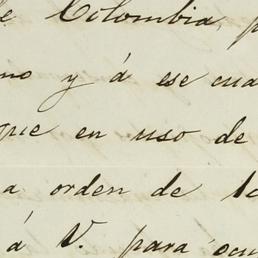 de Colombia, p
no y á ese cua
que en uso de
a orden de
á V. para ocu